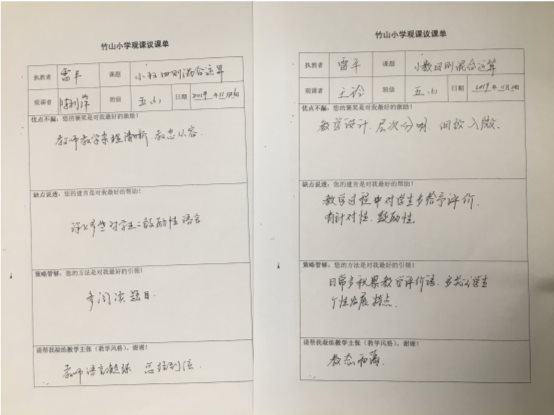 竹山小学观课议课单
执教者 雷平 课题 小数四则混合运算
观课者 班级 五(1) 日期 2019年11月
优点不漏:您的褒奖是对我最好的激励!
教师教学条理清晰 教态从容
缺点说透:您的建言是对我最好的帮助!
对学生 鼓励性语言
策略管够:您的方法是对我最好的引领!
多阅读题目
请帮我凝练教学主张(教学风格),谢谢!
教师语言凝练 总结到位
竹山小学观课议课单
执教者 雷平 课题 小数四则混合运算
观课者 王 班级 五(1) 日期 2019年11月
优点不漏:您的褒奖是对我最好的激励!
教学设计,层次分明,细致入微
缺点说透:您的建言是对我最好的帮助!
教学过程中对学生多给予评价,
有针对性、鼓励性。
策略管够:您的方法是对我最好的引领!
日常多积累教学评价语,多关注学生
个性发展特点。
请帮我凝练教学主张(教学风格),谢谢!
教态